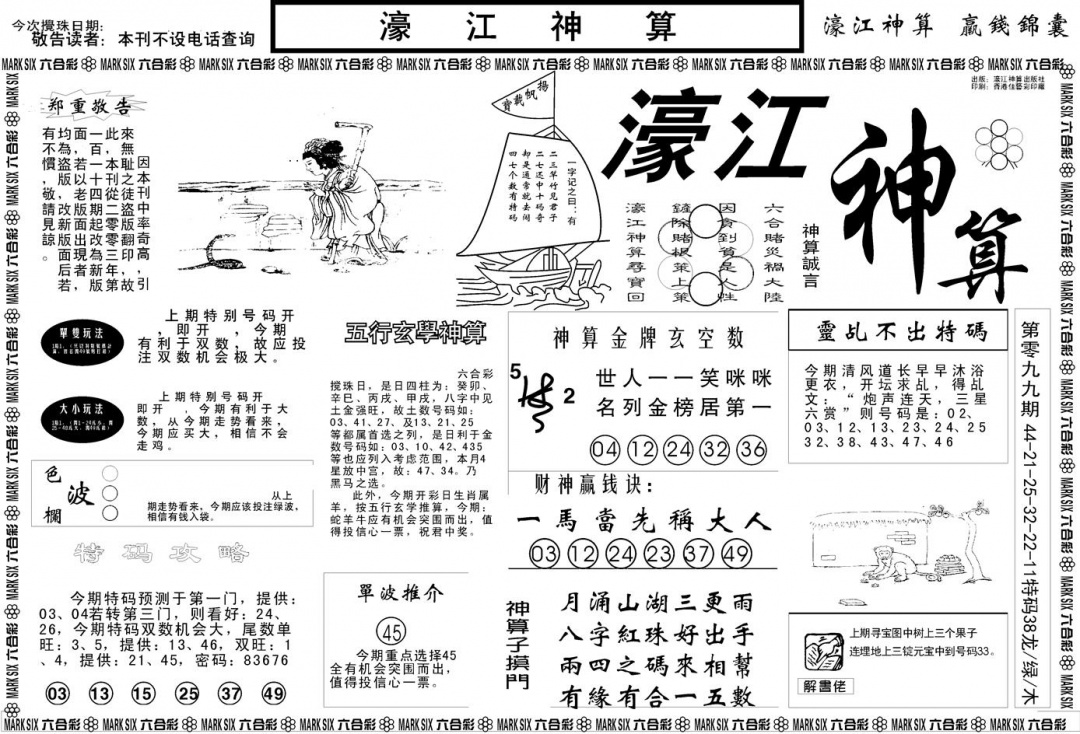 今次攪珠日期:
敬告读者：本刊不设电话查询
濠江神算
濠江神算 贏錢錦囊
MARK SIX 六合彩 MARK SIX 六合彩 MARK SIX 六合彩 MARK SIX 六合彩 MARK SIX 六合彩 MARK SIX 六合彩 MARK SIX 六合彩 MARK SIX 六合彩 MARK SIX 六合彩 MARK SIX 六合彩 MARK SIX 六合彩
出版：濠江神算出版社
印刷：香港佳藝彩印廠
郑重敬告
因本刊中率奇高，引
來無恥之徒盜版翻印，故
此，本刊從二零零三年第
一百一十四期起改為新版
面若以老版面出現，后者
均為盜版，改新版面，若
有不慣，敬請見諒。
揚帆載寶
一字记之曰：有
二三草竹见君子
二七还中十码奇
却是通常就去闹
四七个数有特码
濠江
神算
六合賭災禍大陸
因貪到貧是人性
鏟除賭根策上策
濠江神算尋寶回
神算誠言
單雙玩法
上期特别号码开
，即开　，今期
有利于双数，故应投
注双数机会极大。
大小玩法
上期特别号码开
即开　，今期有利于大
数，从今期走势看来，
今期应买大，相信不会
走鸡。
色波欄
从上
期走势看来，今期应该投注绿波，
相信有钱入袋。
特码攻略
今期特码预测于第一门，提供：
03、04若转第三门，则看好：24、
26，今期特码双数机会大，尾数单
旺：3、5，提供：13、46，双旺：1
、4，提供：21、45，密码：83676
03 13 15 25 37 49
五行玄學神算
六合彩
搅珠日，是日四柱为：癸卯、
辛巳、丙戌、甲戌，八字中见
土金强旺，故土数号码如：
03、41、27、及13、21、25
等都属首选之列，是日利于金
数号码如：03、10、42、435
等也应列入考虑范围，本月4
星放中宫，故：47、34。乃
黑马之选。
此外，今期开彩日生肖属
羊，按五行玄学推算，今期：
蛇羊牛应有机会突围而出，值
得投信心一票，祝君中奖。
單波推介
45
今期重点选择45
全有机会突围而出，
值得投信心一票。
神算金牌玄空数
5
2
世人一一笑咪咪
名列金榜居第一
04 12 24 32 36
财神赢钱诀：
一馬當先稱大人
03 12 24 23 37 49
神算子摸門
月涌山湖三更雨
八字紅珠好出手
兩四之碼來相幫
有緣有合一五數
靈乩不出特碼
今期清风道长早早沐浴
更衣，开坛求乩，得乩
文：“炮声连天，三星
六赏”则号码是：02、
03、12、13、23、24、25
32、38、43、47、46
上期寻宝图中树上三个果子
连埋地上三锭元宝中到号码33。
解畫佬
第零九九期 44-21-25-32-22-11特码38龙/绿/木
MARK SIX 六合彩 MARK SIX 六合彩 MARK SIX 六合彩 MARK SIX 六合彩 MARK SIX 六合彩 MARK SIX 六合彩 MARK SIX 六合彩 MARK SIX 六合彩 MARK SIX 六合彩 MARK SIX 六合彩 MARK SIX 六合彩